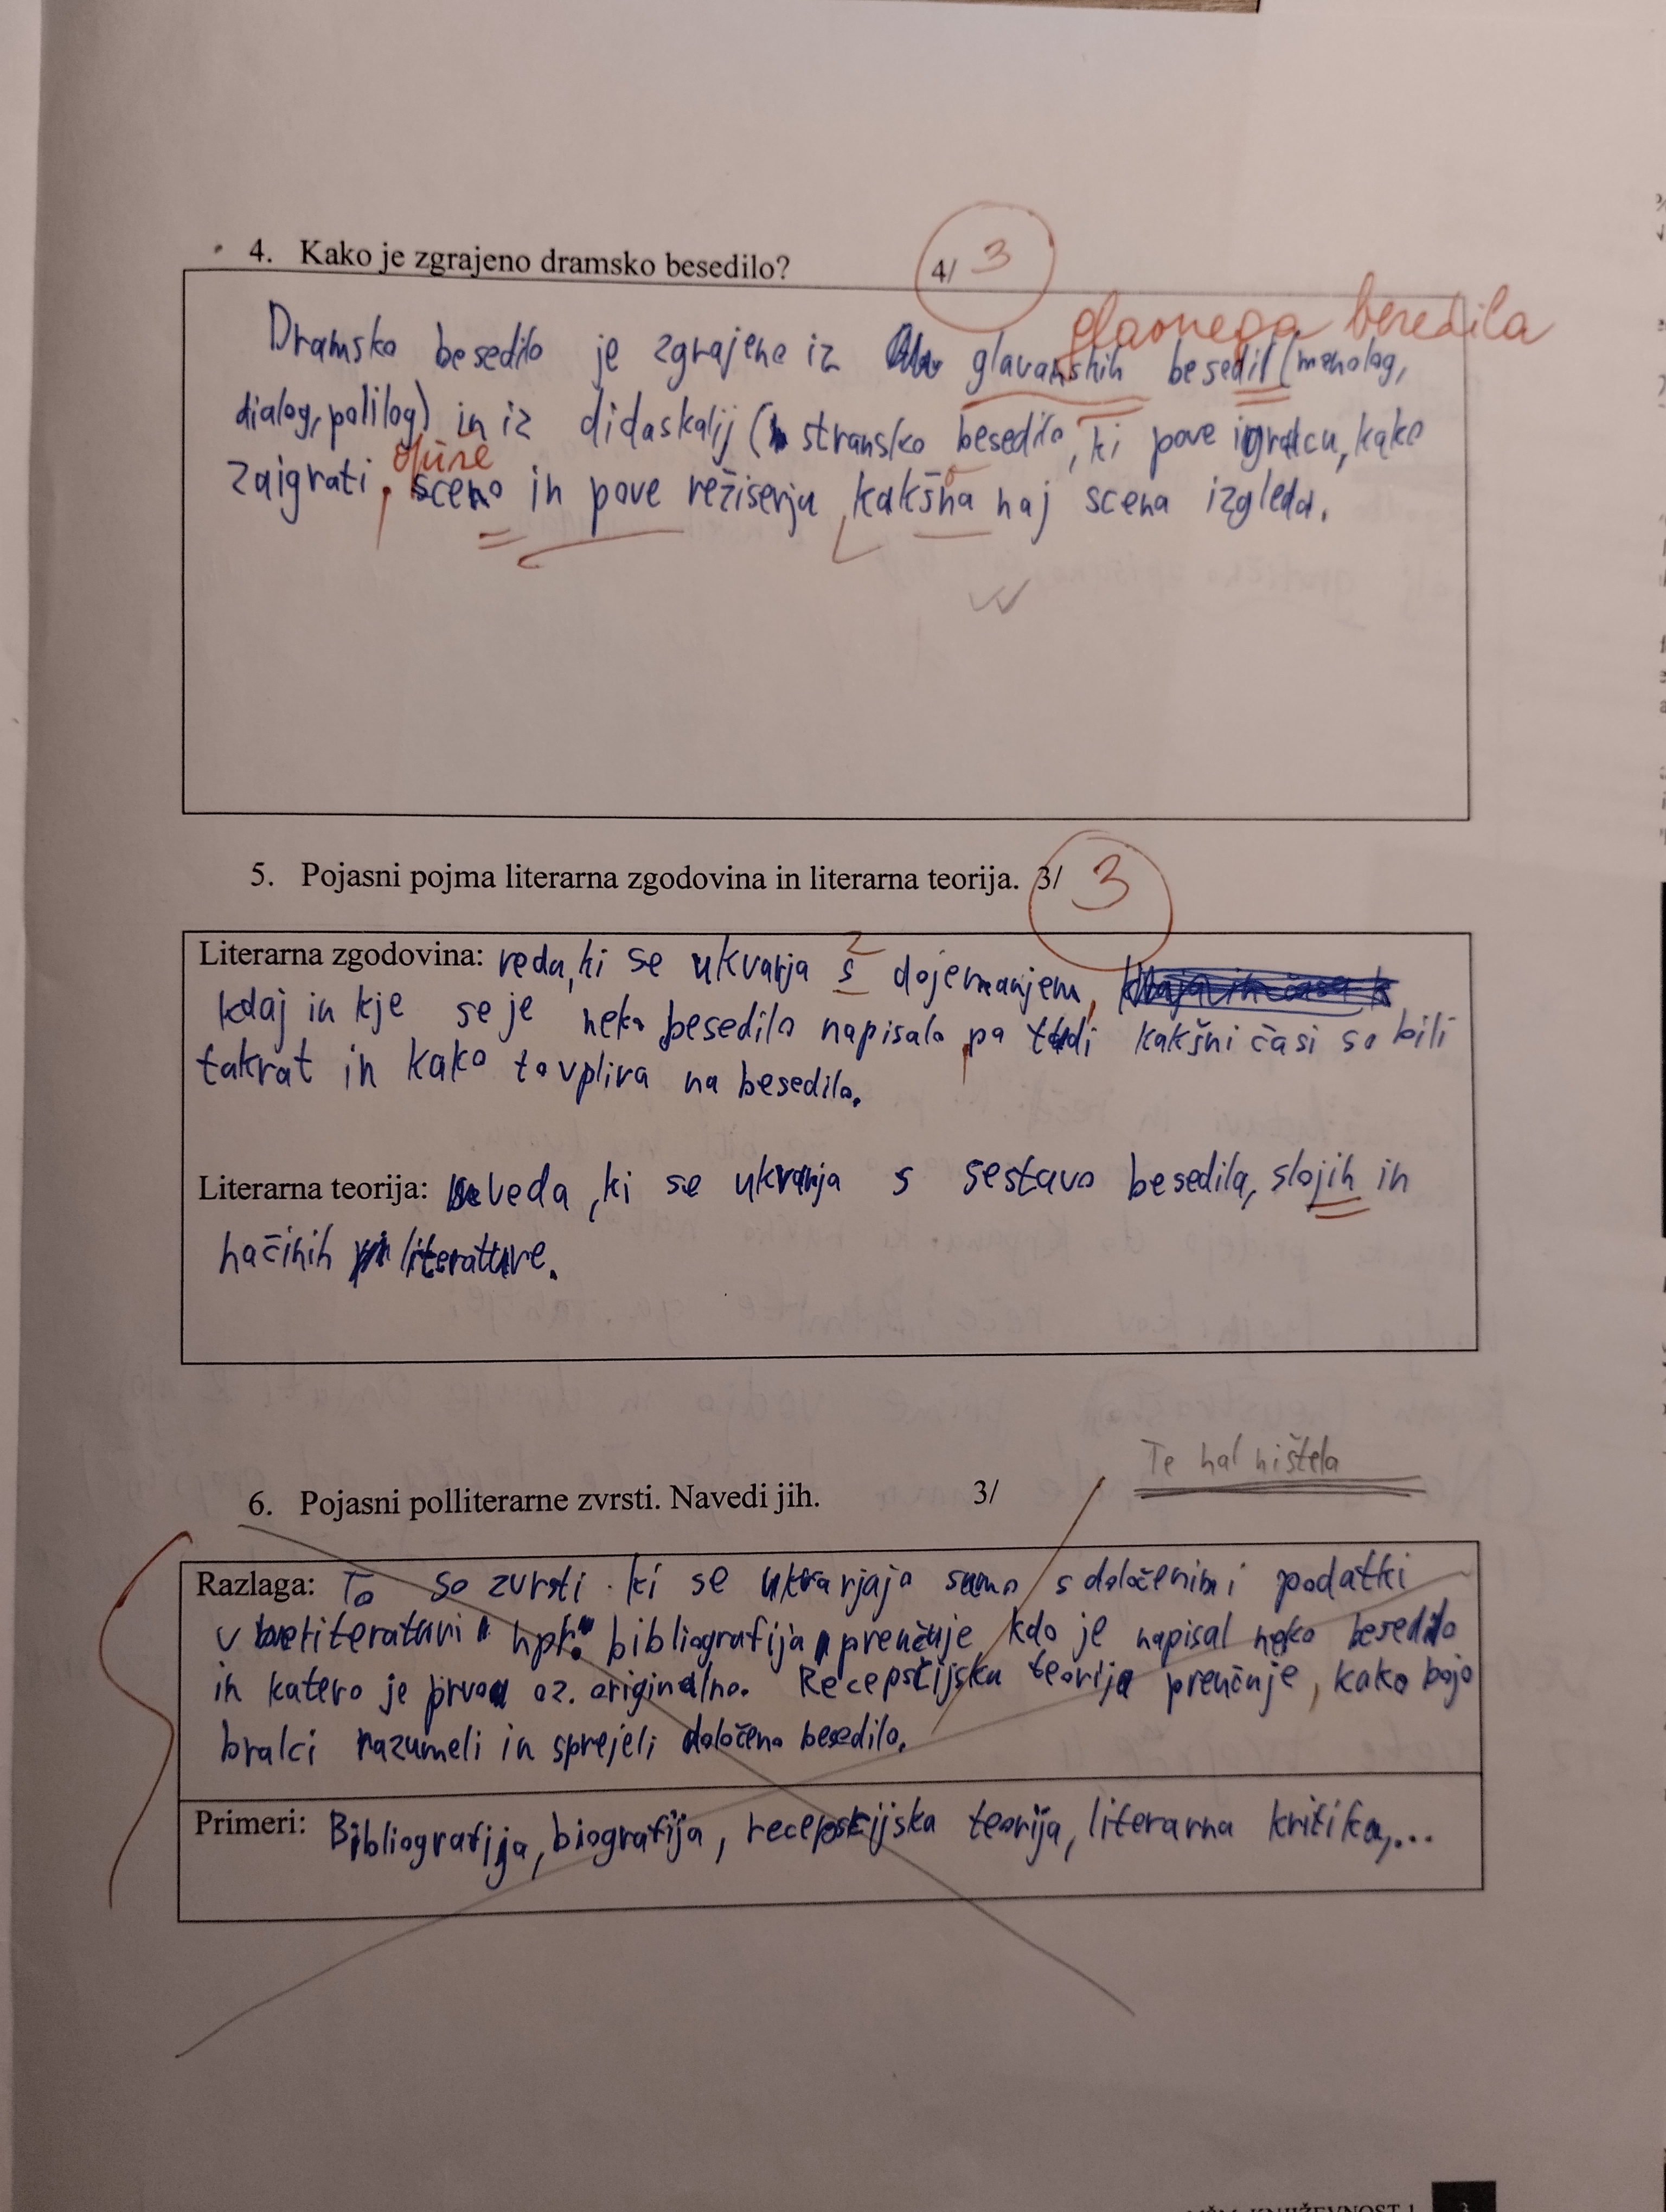 4. Kako je zgrajeno dramsko besedilo? 4/ 3
glavnega besedila
Dramsko besedilo je zgrajeno iz glavanskih besedil (monolog,
dialog, polilog) in iz didaskalij (stransko besedilo, ki pove igralcu, kako
zaigrati, sceno in pove režiserju kakšna naj scena izgleda.
5. Pojasni pojma literarna zgodovina in literarna teorija. 3/ 3
Literarna zgodovina: veda, ki se ukvarja s dojemanjem,
kdaj in kje se je neko besedilo napisalo, pa tudi kakšni časi so bili
takrat in kako to vpliva na besedilo.
Literarna teorija: veda, ki se ukvarja s sestavo besedila, slojih in
načinih literature.
Te nal ništela
6. Pojasni polliterarne zvrsti. Navedi jih. 3/
Razlaga: To so zvrsti ki se ukvarjajo samo s določenimi podatki
v literaturi npr. bibliografija preučuje kdo je napisal neko besedilo
in katero je prvo oz. originalno. Recepscijska teorija preučuje, kako bojo
bralci razumeli in sprejeli določeno besedilo.
Primeri: Bibliografija, biografija, recepscijska teorija, literarna kritika,...